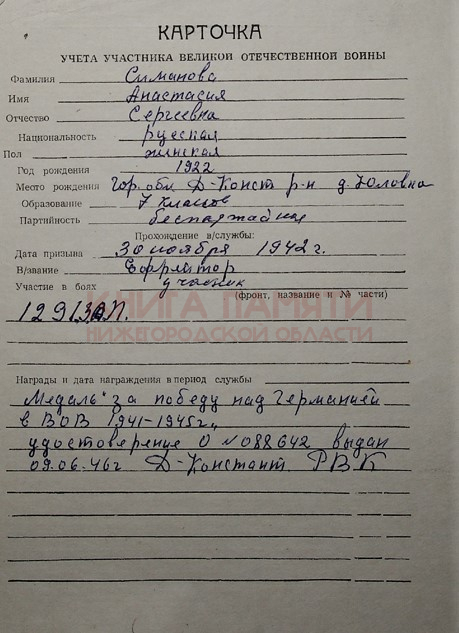 КАРТОЧКА
УЧЕТА УЧАСТНИКА ВЕЛИКОЙ ОТЕЧЕСТВЕННОЙ ВОЙНЫ
Фамилия Симанова
Имя Анастасия
Отчество Сергеевна
Национальность русская
Пол женская
Год рождения 1922
Место рождения Гор. обл. Д-Конст р-н д.
Образование 7 классов
Партийность беспартайная
Прохождение в/службы:
Дата призыва 30 ноября 1942 г.
В/звание Ефрейтор
Участие в боях участник
(фронт, название и № части)
КНИГА ПАМЯТИ
1291
НИЖЕГОРОДСКОЙ ОБЛАСТИ
Награды и дата награждения в период службы
Медаль "за победу над Германией
в ВОВ 1941-1945г."
удостоверение О №088642 выдан
09.06.46г Д-Констант. РВК